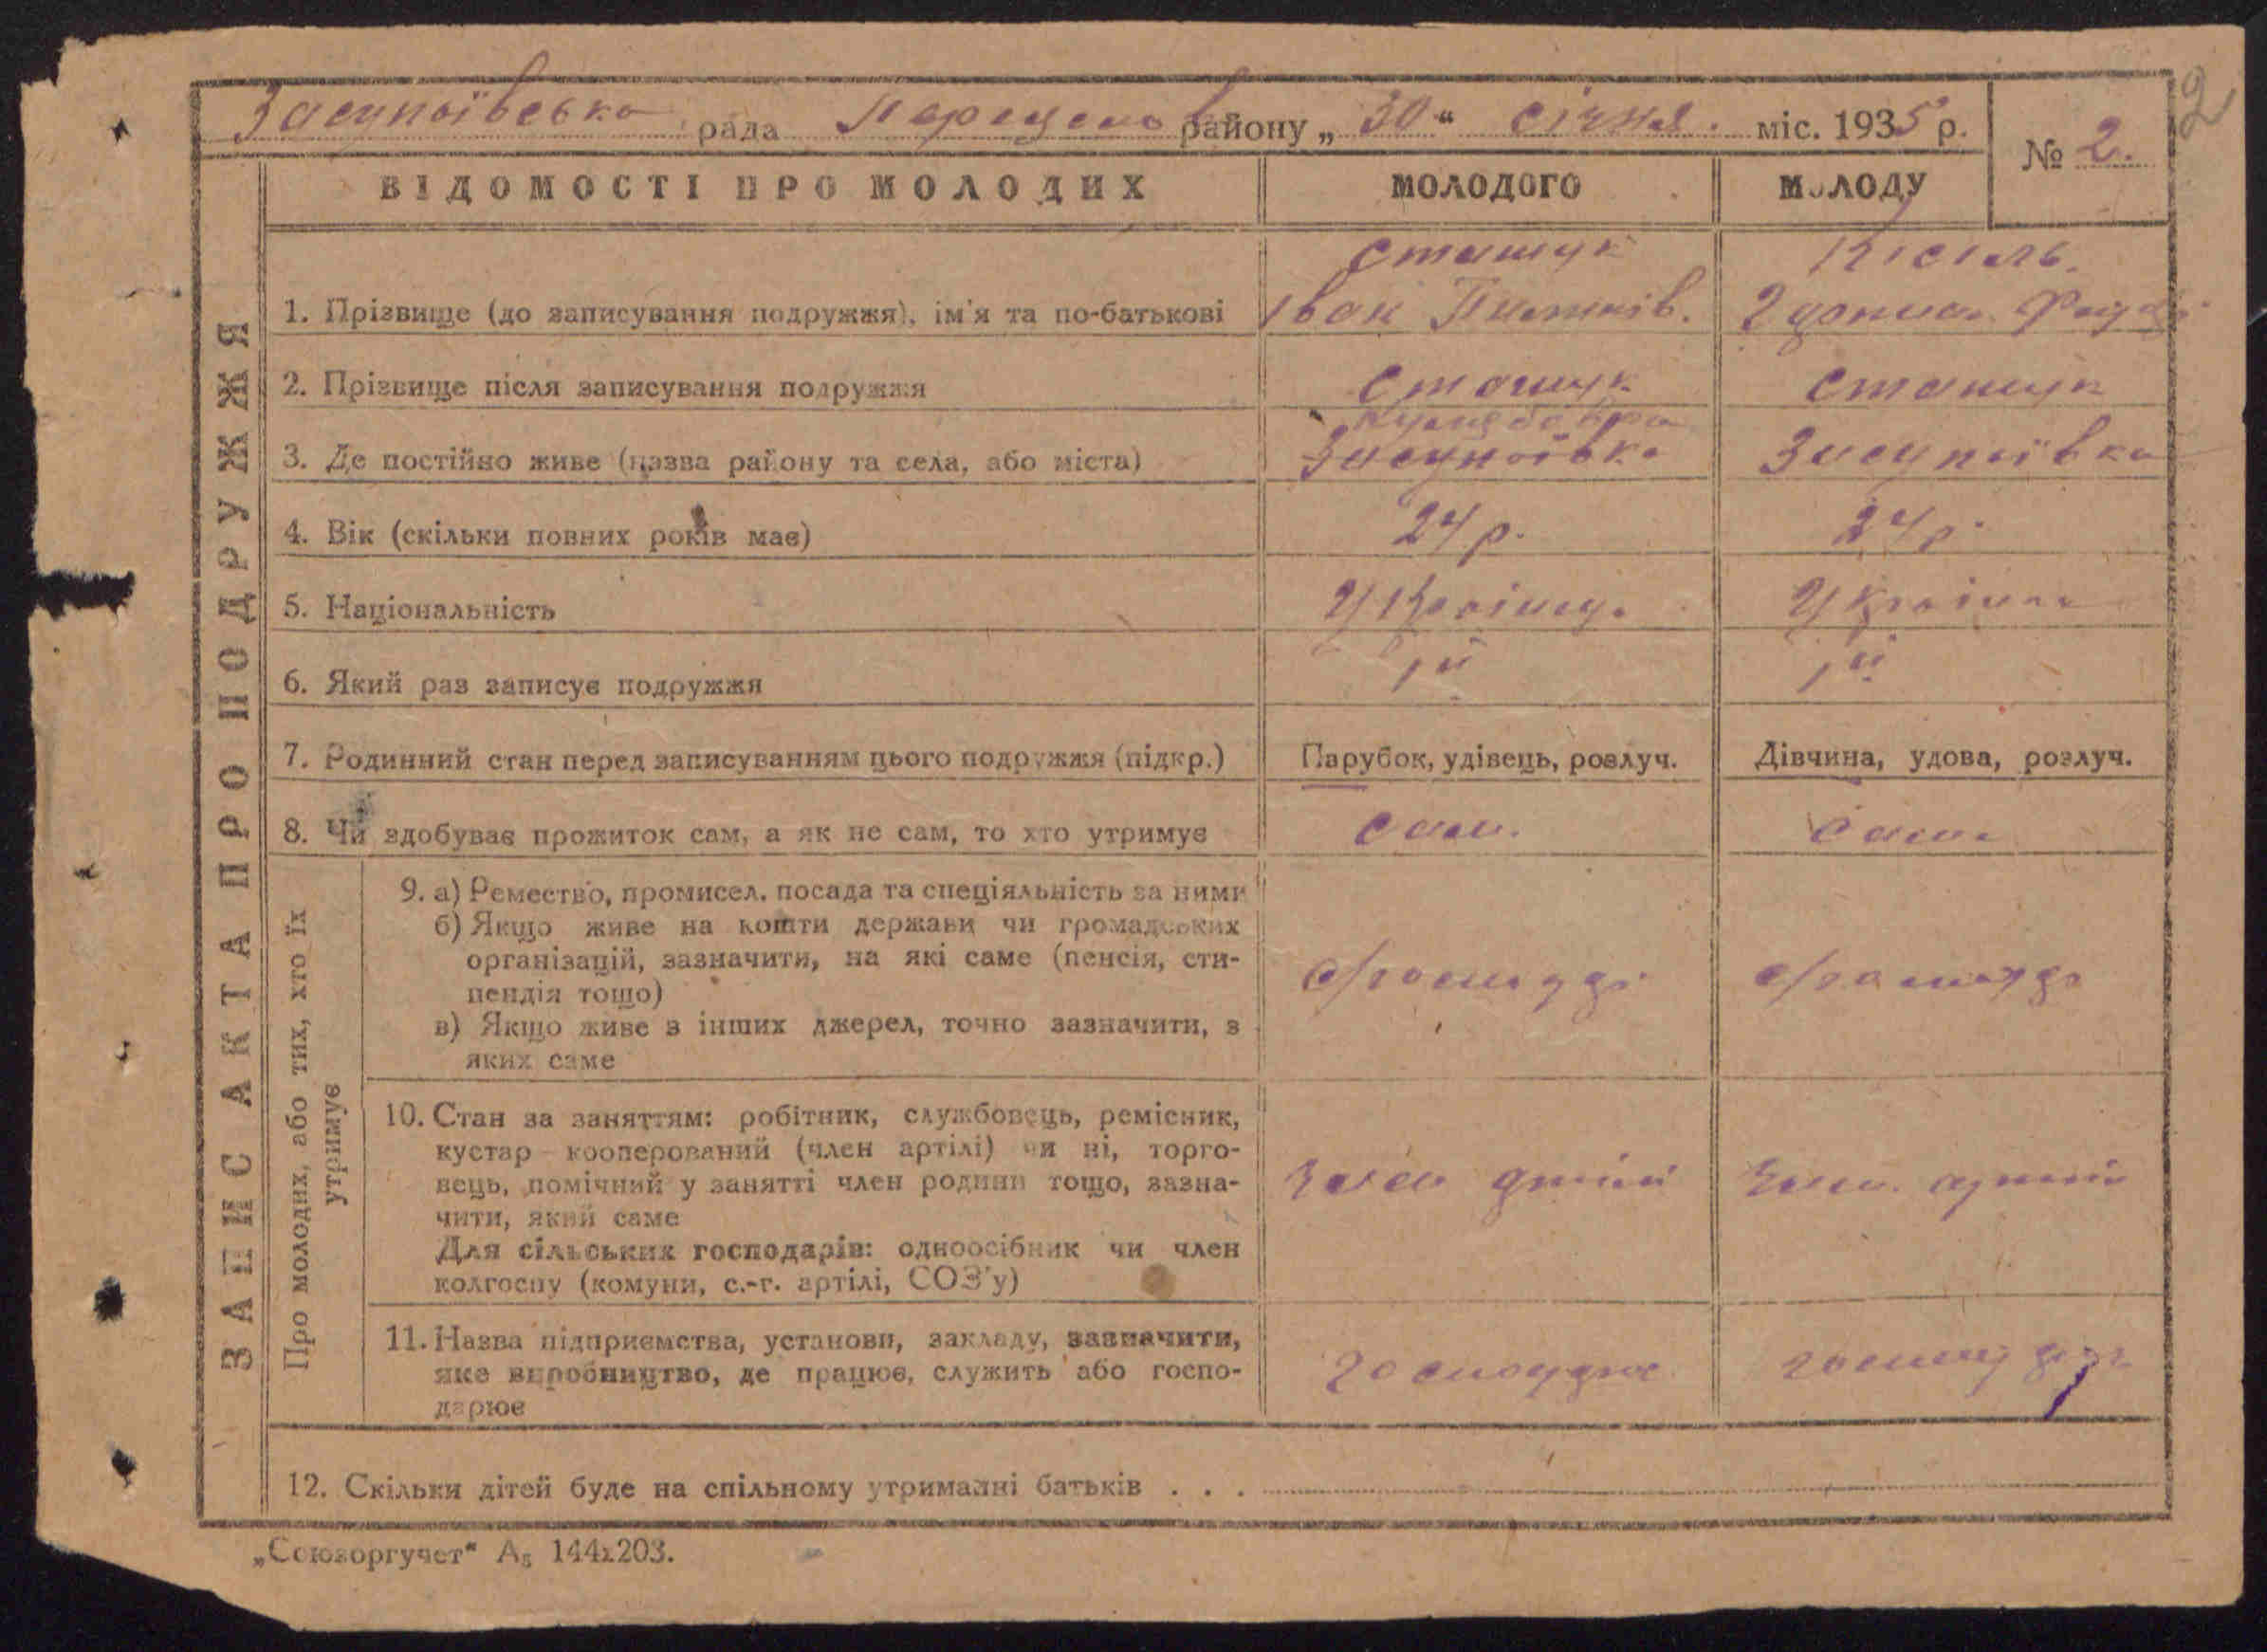 Засупоївська рада района „ 30 “ січня. міс. 1935 р.
№ 2.
2
ЗАПИС АКТА ПРО ПОДРУЖЖЯ
ВІДОМОСТІ ПРО МОЛОДИХ
МОЛОДОГО
МОЛОДУ
1. Прізвище (до записування подружжя), ім'я та по-батькові
Сташук
Іван
Кісіль.
2. Прізвище після записування подружжя
Сташук
Сташук
3. Де постійно живе (назва району та села, або міста)
Засупоївка
Засупоївка
4. Вік (скільки повних років має)
24 р.
24 р.
5. Національність
6. Який раз записує подружжя
1й
1й
7. Родинний стан перед записуванням цього подружжя (підкр.)
Парубок, удівець, розлуч.
Дівчина, удова, розлуч.
8. Чи здобуває прожиток сам, а як не сам, то хто утримує
сам.
сама
Про молодих, або тих, хто їх
утримує
9. а) Ремество, промисел, посада та спеціяльність за ними
б) Якщо живе на кошти держави чи громадських
організацій, зазначити, на які саме (пенсія, сти-
пендія тощо)
в) Якщо живе з інших джерел, точно зазначити, з
яких саме
10. Стан за заняттям: робітник, службовець, ремісник,
кустар кооперований (член артілі) чи ні, торго-
вець, помічний у занятті член родини тощо, зазна-
чити, який саме
Для сільських господарів: одноосібник чи член
колгоспу (комуни, с.-г. артілі, СОЗ'у)
11. Назва підприємства, установи, закладу, зазначити,
яке виробництво, де працює, служить або госпо-
дарює
12. Скільки дітей буде на спільному утриманні батьків . . .
„Союзоргучет“ А5 144х203.